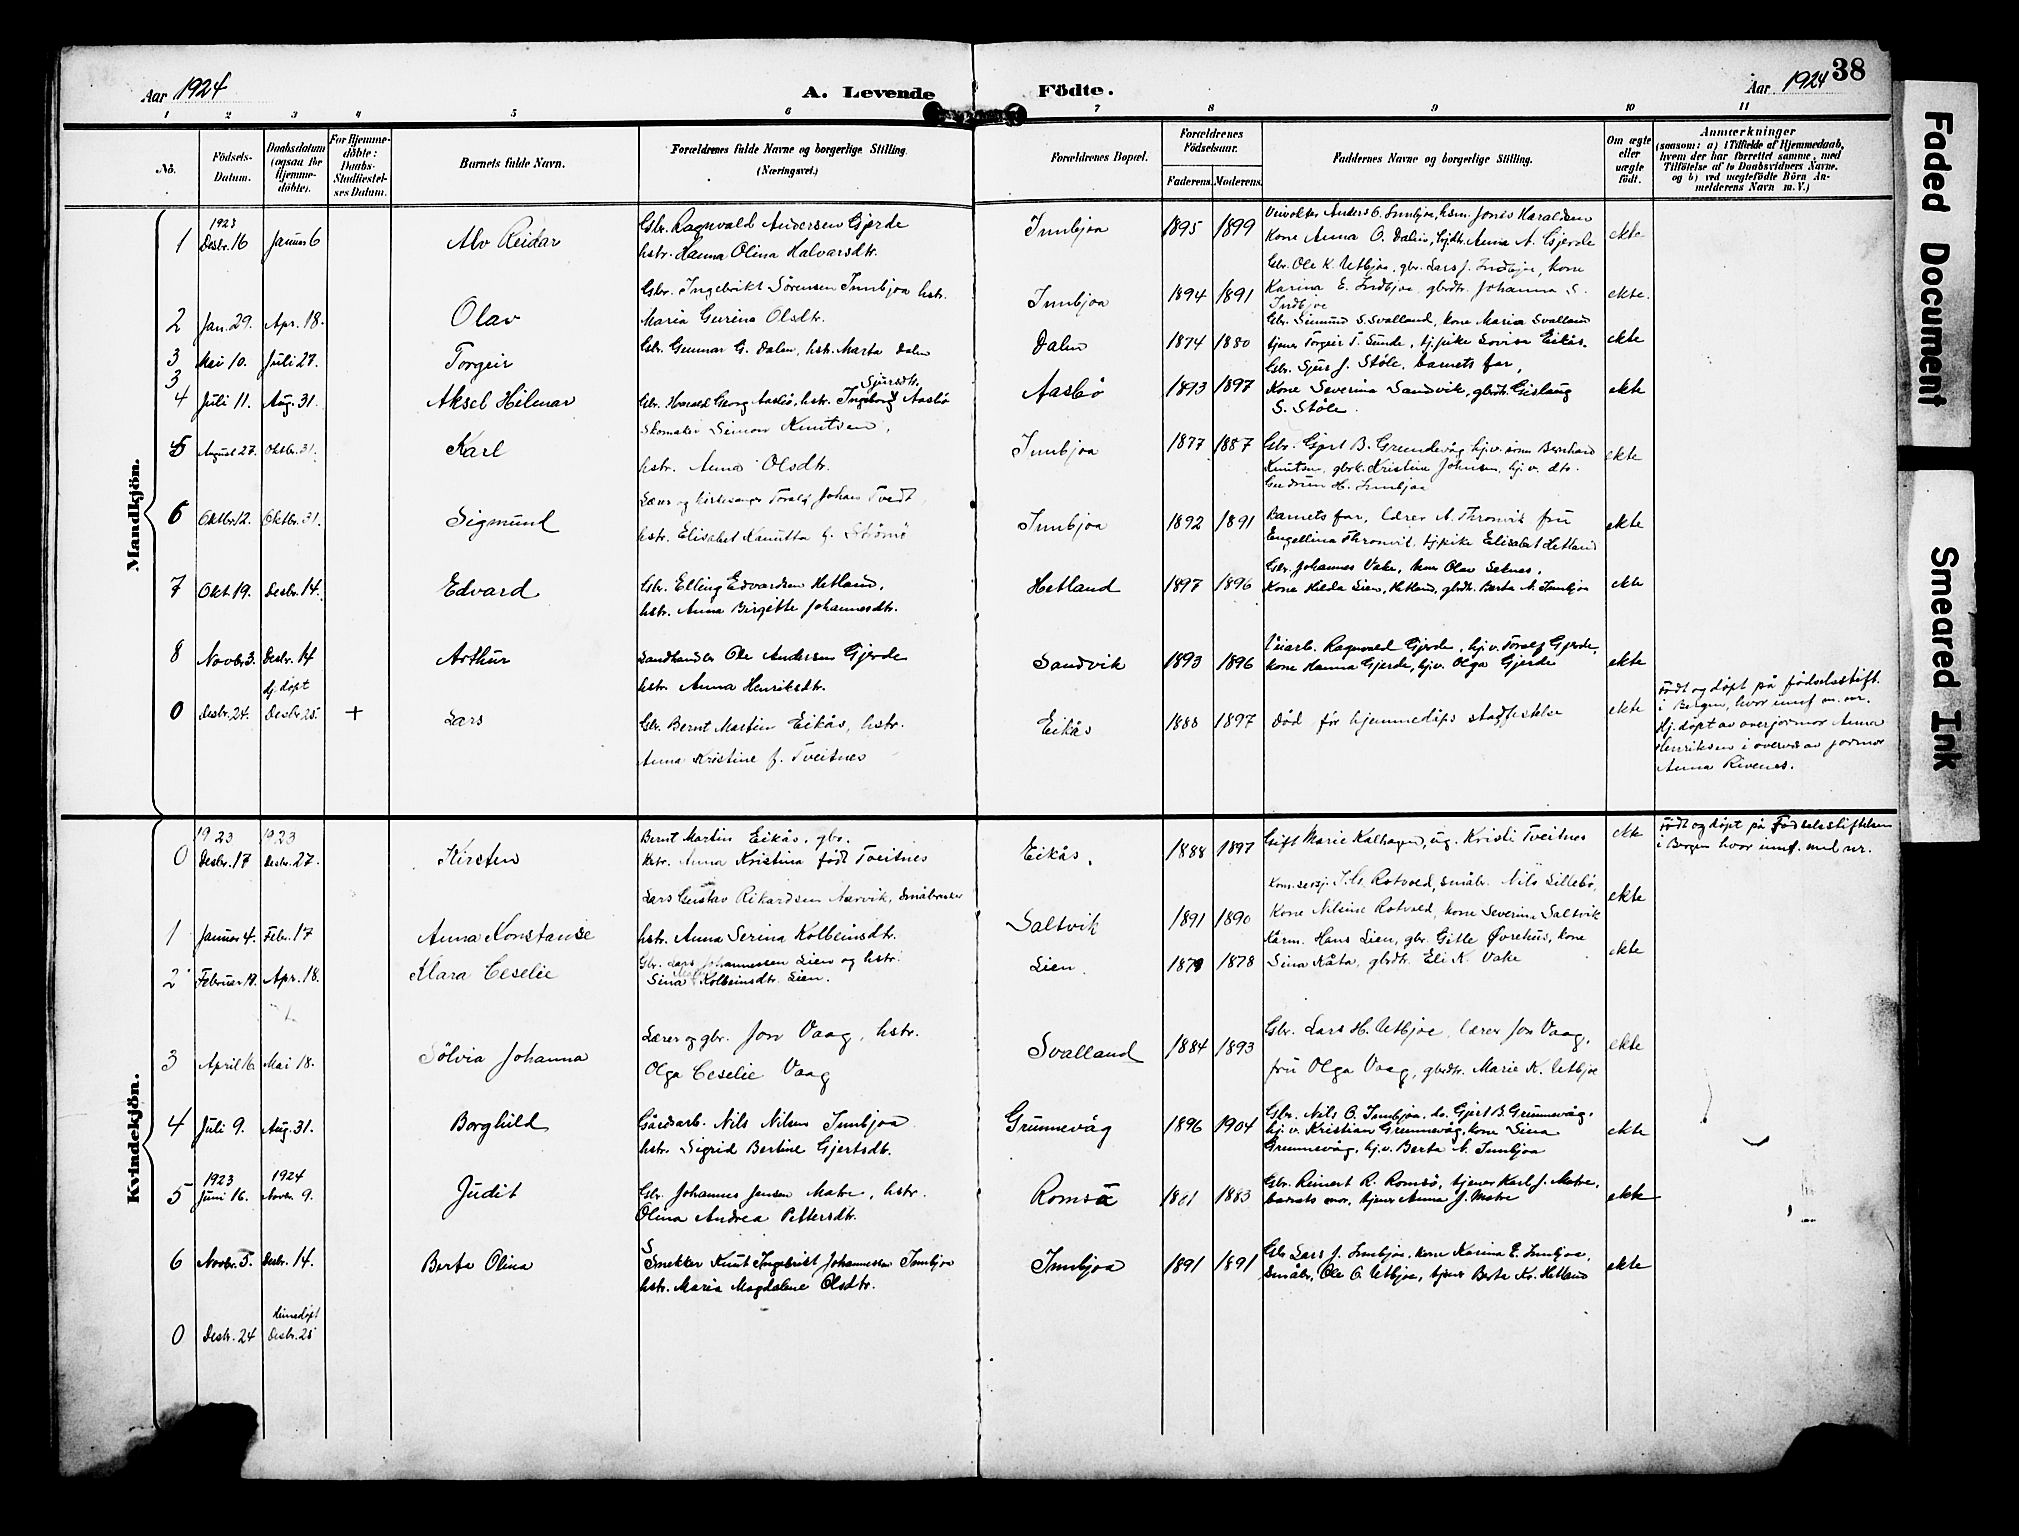 Aar 1924
A. Levende Födte.
Aar 1924
38
1 2 3 4 5 6 7 8 9 10 11
No.
Födsels-Datum.
Daabsdatum (ogsaa for Hjemmedöbte).
For Hjemmedöbte: Daabs-Stadfæstelses Datum.
Barnets fulde Navn.
Forældrenes fulde Navne og borgerlige Stilling. (Næringsvei.)
Forældrenes Bopæl.
Forældrenes Födselsaar.
Faderens. Moderens.
Faddernes Navne og borgerlige Stilling.
Om ægte eller uægte födt.
Anmærkninger (saasom: a) i Tilfælde af Hjemmedaab, hvem der har forrettet samme, med Tilföielse af to Daabsvidners Navne. og b) ved uægtefödte Börn Anmelderens Navn m. V.)
Mandkjön.
1 1923 Desbr. 16 Januar 6 Alv Reidar Gbr. Ragnvald Andersen Gjerde
hstr. Hanna Olina Halvarsdtr. Innbjoa 1895 1899
Kone Anna O. Dalen, Anna A. Gjerde ekte
2 Jan. 29. Apr. 18. Olav Gbr. Ingebrikt Sörensen Innbjoa hstr.
Maria Gurina Olsdtr. Innbjoa 1894 1891 Gbr. Ole K. Utbjoa, gbr. Lars J. Indbjoe, kone
Karina E. Indbjoe, gbrdtr. Johanna S.
Indbjoe ekte.
3 Mai 10. Juli 27. Torgeir Gbr. Gunnar G. Dalen, hstr. Marta Dalen Dalen 1874 1880 Gbr. Simund S. Svalland, kone Maria Svalland
tjener Torgeir T. Sunde, tj.pike Lovisa Eikås. ekte
3
4 Juli 11. Aug. 31. Aksel Hilmar Gbr. Harald Georg Aasbö, hstr. Ingeborg Sjursdtr. Aasbö Aasbö 1893 1897 Gbr. Sjur J. Stöle, barnets far,
Kone Severina Sandvik, gbrdtr. Gislaug
S. Stöle. ekte
5 August 27. Oktbr. 31. Karl Skomaker Simon Knutsen,
hstr. Anna Olsdtr. Innbjoa 1877 1887 Gbr. Gjert B. Grunnevåg hj.v. sönn Bernhard
Knutsen, Kristine Johnsen, hj.v. dtr.
Gudrun H. Innbjoa ekte
6 Oktbr. 12. Oktbr. 31. Sigmund Lærer og kirkesanger Toralf Johan Tvedt,
hstr. Elisabet Kanutta f. Strömö Innbjoa 1892 1891 Barnets far, lærer A. Thronvik fru
Engellina Thronvik, tj.pike Elisabet Hetland ekte
7 Okt. 19. Desbr. 14. Edvard Gbr. Elling Edvardsen Hetland,
hstr. Anna Birgitte Johannesdtr. Hetland 1897 1896 Gbr. Johannes Vake,
Kone Hilda Lien, Hetland, gbrdtr. Berta A. Innbjoa ekte
8 Novbr. 3. Desbr. 14 Arthur Landhandler Ole Andersen Gjerde
hstr. Anna Henriksdtr. Sandvik 1893 1896 Veiarb. Ragnvald Gjerde, hj.v. Toralf Gjerde,
kone Hanna Gjerde, hj.v. Olga Gjerde ekte
0 Desbr. 24. hj. döpt Desbr. 25. + Lars Gbr. Bernt Martin Eikås, hstr.
Anna Kristine f. Tveitnes Eikås 1888 1897 Död för hjemmedåps stadfestelse ekte Födt og döpt på födselsstift.
i Bergen, hvor innf. m. nr.
Hj. döpt av overjormor Anna
Henriksen i overvær av jormor
Anna Rivenes.
Kvindekjön.
0 1923 Desbr. 17 1923 Desbr. 27. Kirsten Bernt Martin Eikås, gbr.
hstr. Anna Kristina födt Tveitnes Eikås. 1888 1897 Gift Marie Kalhagen, ug. Kristi Tveitnes ekte Födt og döpt på Födselsstiftelsen
i Bergen hvor innf. med nr.
1 Januar 4. Febr. 17 Anna Konstanse Lars Gustav Rikardsen Nærvik, Småbruker
hstr. Anna Serina Kolbeinsdtr. Saltvik 1891 1890 Rotvold, småbr. Nils Lillebö,
Kone Nilsine Rotvold, kone Severina Saltvik ekte
2 Februar 18. Apr. 18. Klara Ceselie Gbr. Lars Johannessen Lien og hstr.
Sina Kolbeinsdtr. Lien. Lien. 1879 1878 Hans Lien, gbr. Gitle Övrehus, kone
Sina Kåta, gbrdtr. Eli K. Vake ekte
3 April 16 Mai 18. Sölvia Johanna Lærer og gbr. Jon Vaag, hstr.
Olga Ceselie Vaag Svalland 1884 1893 Gbr. Lars H. Utbjoe, lærer Jon Vaag,
fru Olga Vaag, gbrdtr. Marie K. Utbjoe ekte
4 Juli 9. Aug. 31. Borghild Gårdsarb. Nils Nilsen Innbjoa
hstr. Sigrid Bertine Gjertsdtr. Grunnevåg 1896 1904 Gbr. Nils O. Innbjoa, do. Gjert B. Grunnevåg,
hj.v. Kristian Grunnevåg, kone Sina
Grunnevåg, hj.v. Berta N. Innbjoa ekte
5 1923 Juni 16. 1924 Novbr. 9. Judit Gbr. Johannes Jensen Matre, hstr.
Olina Andrea Pettersdtr. Romsa 1883 Gbr. Reinert R. Romsö, tjener Karl J. Matre,
barnets mor, tjener Anna J. Matre ekte
6 Novbr. 5. Desbr. 14. Berta Olina Snekker Knut Ingebrikt Johannessen Innbjoa
hstr. Maria Magdalene Olsdtr. Innbjoa 1891 1891 Gbr Lars J. Innbjoa, kone Karina E. Innbjoa,
Småbr. Ole O. Utbjoa, tjener Berta Kr. Hetland ekte
0 Desbr. 24 Heimedöpt Desbr. 25
Faded Document
Smeared Ink